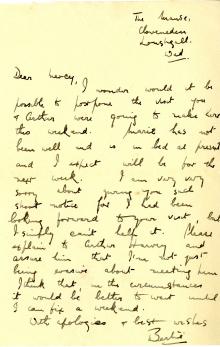 The Manse,
Cloveneden
Loughgall.
Dear
I wonder would it be
possible to postpone the visit you
& Arthur were going to make here
this weekend. has not
been well and is in bed at present
and I expect will be for the
next week. I am very very
sorry about giving you such
short notice for I had been
looking forward to your visit, but
I simply can't help it. Please
explain to Arthur and
assure him that I'm not just
being evasive about meeting him
I think that, in the circumstances
it would be better to wait until
I can fix a weekend.
With apologies & best wishes
Bertie